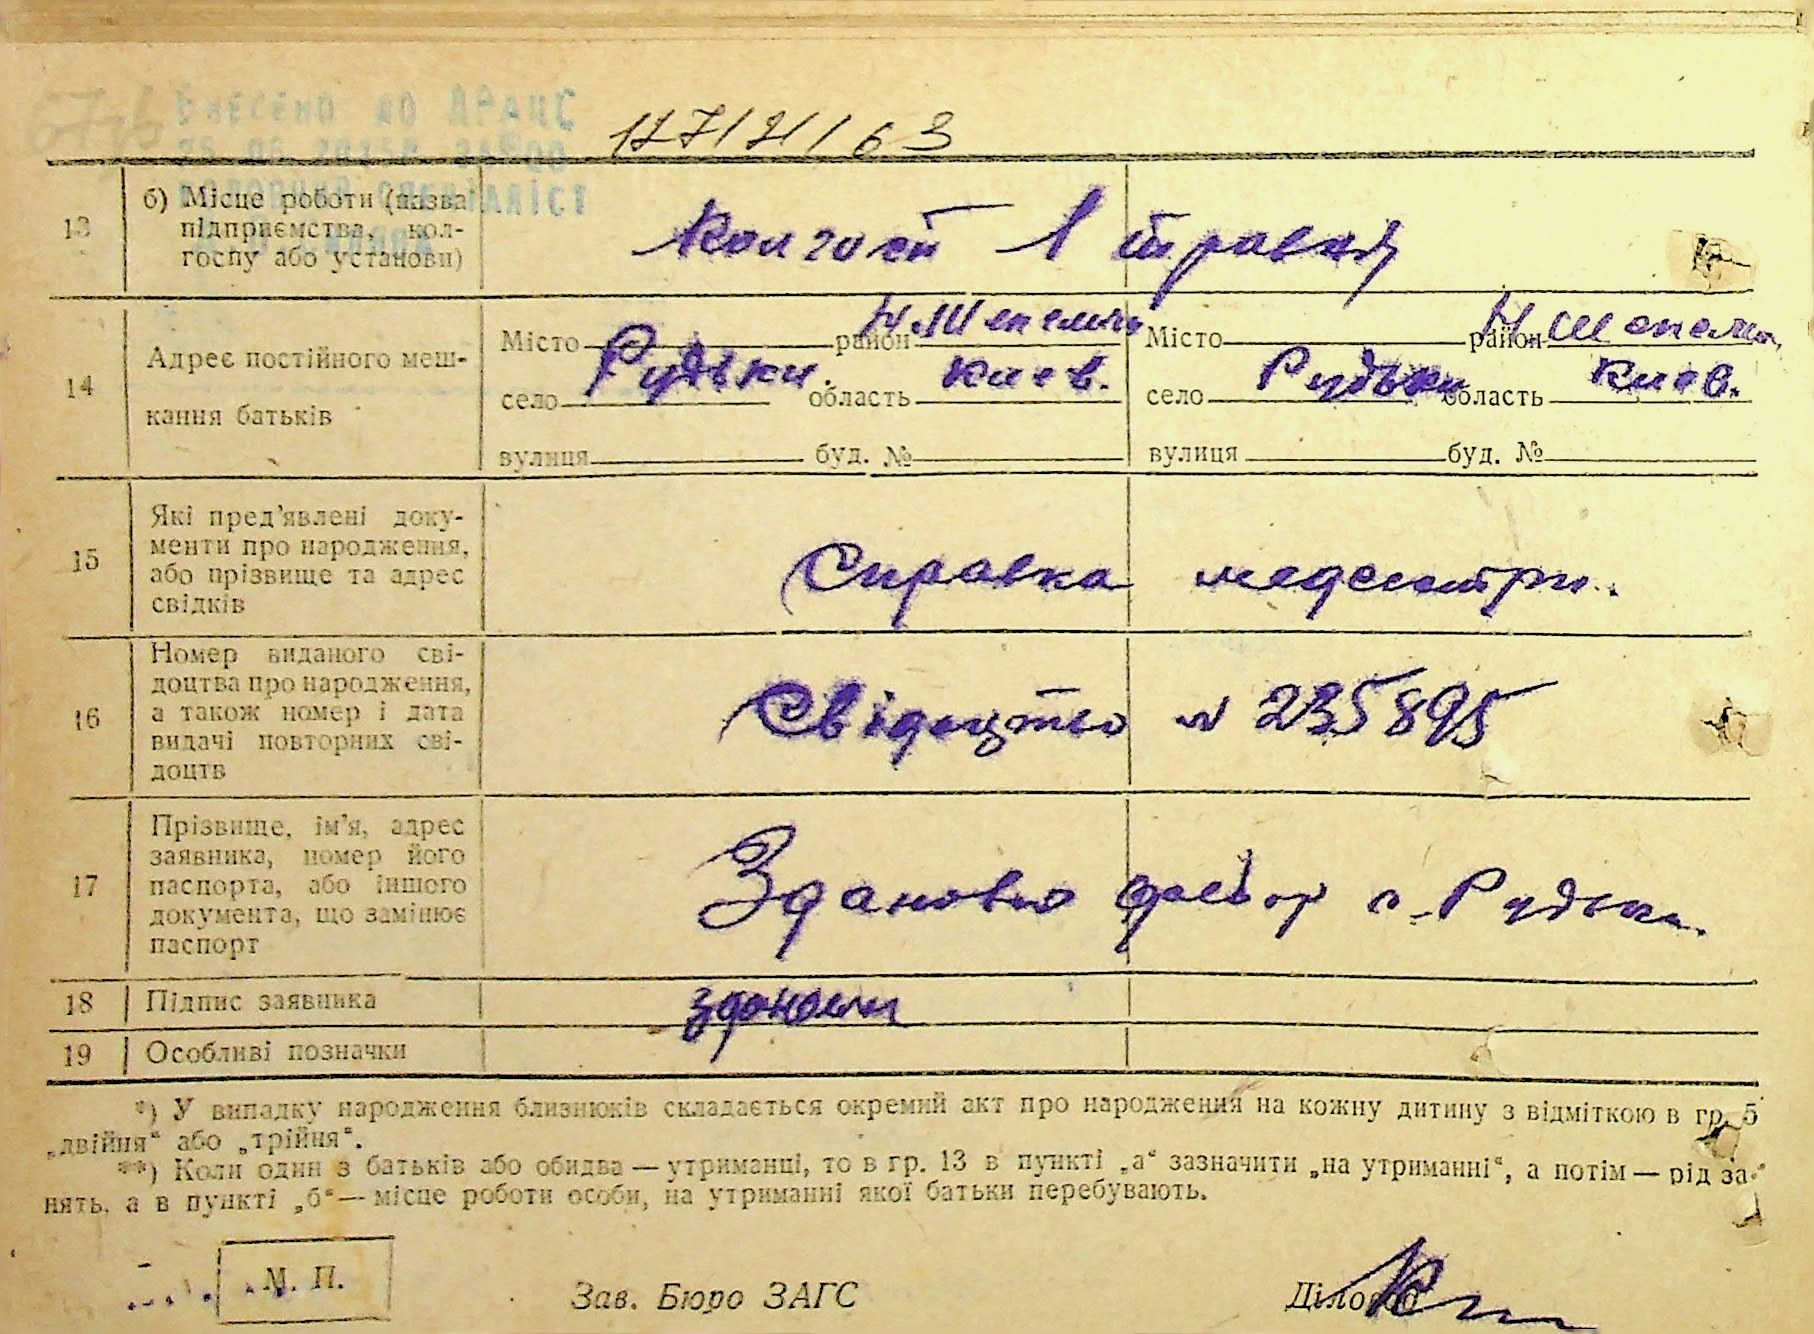 ВНЕСЕНО ДО ДРАЦС
13 б) Місце роботи (назва
підприємства, кол-
госпу або установи)
Колгосп 1 травня
14 Адрес постійного меш-
кання батьків
Місто район Н.Шепелич Місто район Н Шепелич
село Рудьки область Киев. село Рудьки область Киев.
вулиця буд. № вулиця буд. №
15 Які пред'явлені доку-
менти про народження,
або прізвище та адрес
свідків
Справка медсестри.
16 Номер виданого сві-
доцтва про народження,
а також номер і дата
видачі повторних сві-
доцтв
Свідоцтво № 235895
17 Прізвище, ім'я, адрес
заявника, номер його
паспорта, або іншого
документа, що замінює
паспорт
с. Рудьки.
18 Підпис заявника
19 Особливі позначки
*) У випадку народження близнюків складається окремий акт про народження на кожну дитину з відміткою в гр. 5
„двійня“ або „трійня“.
**) Коли один з батьків або обидва — утриманці, то в гр. 13 в пункті „а“ зазначити „на утриманні“, а потім — рід за-
нять, а в пункті „б“ — місце роботи особи, на утриманні якої батьки перебувають.
М. П. Зав. Бюро ЗАГС Діловод